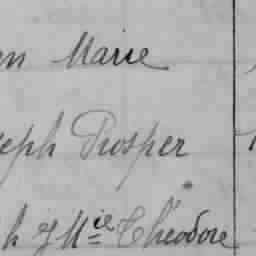 en Marie
seph Prosper
h J Mie Théodore